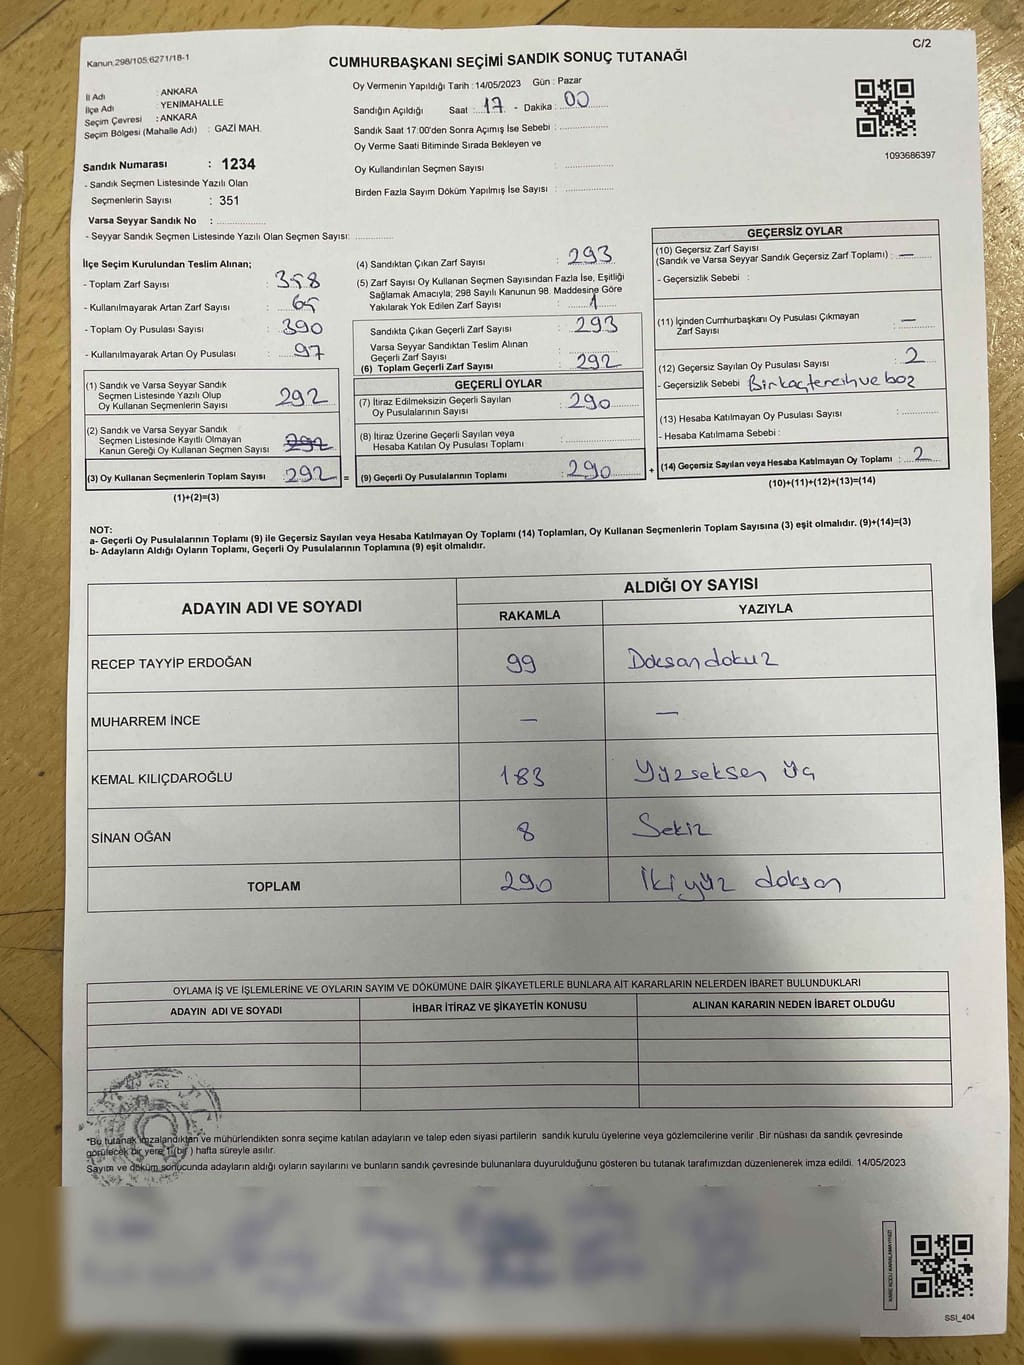 C/2
Kanun,298/105,6271/18-1
CUMHURBAŞKANI SEÇİMİ SANDIK SONUÇ TUTANAĞI
İl Adı : ANKARA
İlçe Adı : YENİMAHALLE
Seçim Çevresi : ANKARA
Seçim Bölgesi (Mahalle Adı) : GAZİ MAH.
Sandık Numarası : 1234
- Sandık Seçmen Listesinde Yazılı Olan
Seçmenlerin Sayısı : 351
Varsa Seyyar Sandık No :
- Seyyar Sandık Seçmen Listesinde Yazılı Olan Seçmen Sayısı:
Oy Vermenin Yapıldığı Tarih : 14/05/2023 Gün : Pazar
Sandığın Açıldığı Saat : 17 - Dakika : 00
Sandık Saat 17:00'den Sonra Açımış İse Sebebi :
Oy Verme Saati Bitiminde Sırada Bekleyen ve
Oy Kullandırılan Seçmen Sayısı :
Birden Fazla Sayım Döküm Yapılmış İse Sayısı :
1093686397
İlçe Seçim Kurulundan Teslim Alınan;
- Toplam Zarf Sayısı : 358
- Kullanılmayarak Artan Zarf Sayısı : 65
- Toplam Oy Pusulası Sayısı : 390
- Kullanılmayarak Artan Oy Pusulası : 97
(1) Sandık ve Varsa Seyyar Sandık
Seçmen Listesinde Yazılı Olup
Oy Kullanan Seçmenlerin Sayısı : 292
(2) Sandık ve Varsa Seyyar Sandık
Seçmen Listesinde Kayıtlı Olmayan
Kanun Gereği Oy Kullanan Seçmen Sayısı : 292
(3) Oy Kullanan Seçmenlerin Toplam Sayısı : 292 =
(1)+(2)=(3)
(4) Sandıktan Çıkan Zarf Sayısı : 293
(5) Zarf Sayısı Oy Kullanan Seçmen Sayısından Fazla İse, Eşitliği
Sağlamak Amacıyla; 298 Sayılı Kanunun 98. Maddesine Göre
Yakılarak Yok Edilen Zarf Sayısı : 1
Sandıkta Çıkan Geçerli Zarf Sayısı : 293
Varsa Seyyar Sandıktan Teslim Alınan
Geçerli Zarf Sayısı :
(6) Toplam Geçerli Zarf Sayısı : 292
GEÇERLİ OYLAR
(7) İtiraz Edilmeksizin Geçerli Sayılan
Oy Pusulalarının Sayısı : 290
(8) İtiraz Üzerine Geçerli Sayılan veya
Hesaba Katılan Oy Pusulası Toplamı :
(9) Geçerli Oy Pusulalarının Toplamı : 290 +
GEÇERSİZ OYLAR
(10) Geçersiz Zarf Sayısı
(Sandık ve Varsa Seyyar Sandık Geçersiz Zarf Toplamı) : —
- Geçersizlik Sebebi :
(11) İçinden Cumhurbaşkanı Oy Pusulası Çıkmayan
Zarf Sayısı : —
(12) Geçersiz Sayılan Oy Pusulası Sayısı : 2
- Geçersizlik Sebebi : Birkaç tercih ve boz
(13) Hesaba Katılmayan Oy Pusulası Sayısı :
- Hesaba Katılmama Sebebi :
(14) Geçersiz Sayılan veya Hesaba Katılmayan Oy Toplamı : 2
(10)+(11)+(12)+(13)=(14)
NOT:
a- Geçerli Oy Pusulalarının Toplamı (9) ile Geçersiz Sayılan veya Hesaba Katılmayan Oy Toplamı (14) Toplamları, Oy Kullanan Seçmenlerin Toplam Sayısına (3) eşit olmalıdır. (9)+(14)=(3)
b- Adayların Aldığı Oyların Toplamı, Geçerli Oy Pusulalarının Toplamına (9) eşit olmalıdır.
ADAYIN ADI VE SOYADI ALDIĞI OY SAYISI
RAKAMLA YAZIYLA
RECEP TAYYİP ERDOĞAN 99 Doksandokuz
MUHARREM İNCE — —
KEMAL KILIÇDAROĞLU 183 Yüzseksen üç
SİNAN OĞAN 8 Sekiz
TOPLAM 290 İkiyüz doksan
OYLAMA İŞ VE İŞLEMLERİNE VE OYLARIN SAYIM VE DÖKÜMÜNE DAİR ŞİKAYETLERLE BUNLARA AİT KARARLARIN NELERDEN İBARET BULUNDUKLARI
ADAYIN ADI VE SOYADI İHBAR İTİRAZ VE ŞİKAYETİN KONUSU ALINAN KARARIN NEDEN İBARET OLDUĞU
*Bu tutanak imzalandıktan ve mühürlendikten sonra seçime katılan adayların ve talep eden siyasi partilerin sandık kurulu üyelerine veya gözlemcilerine verilir .Bir nüshası da sandık çevresinde
görülecek bir yere 1 (bir ) hafta süreyle asılır.
Sayım ve döküm sonucunda adayların aldığı oyların sayılarını ve bunların sandık çevresinde bulunanlara duyurulduğunu gösteren bu tutanak tarafımızdan düzenlenerek imza edildi. 14/05/2023
KARE KODU KARALAMAYINIZ!
SSI_404